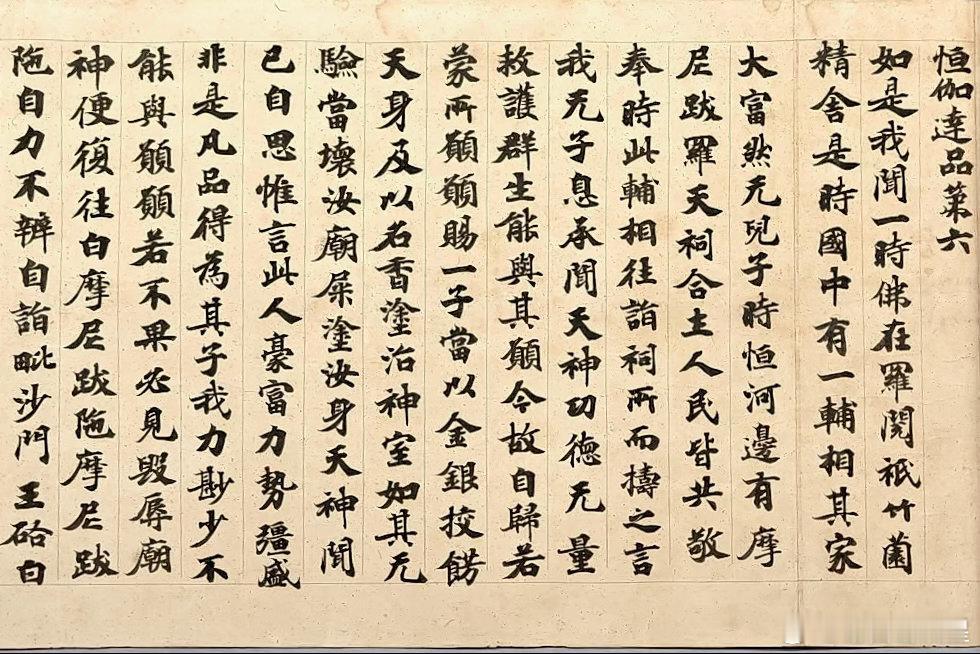 恒伽達品第六
如是我聞一時佛在羅閱祇竹薗
精舍是時國中有一輔相其家
大富然无兒子時恒河邊有摩
尼跋羅天祠合土人民皆共敬
奉時此輔相往詣祠所而擣之言
我无子息承聞天神功德无量
救護群生能與其願今故自歸若
蒙所願願賜一子當以金銀挍餝
天身及以名香塗治神室如其无
驗當壞汝廟屎塗汝身天神聞
已自思惟言此人豪富力勢彊盛
非是凡品得為其子我力尠少不
能與願願若不果必見毀辱廟
神便復往白摩尼跋陁摩尼跋
陁自力不辦自詣毗沙門王啓白